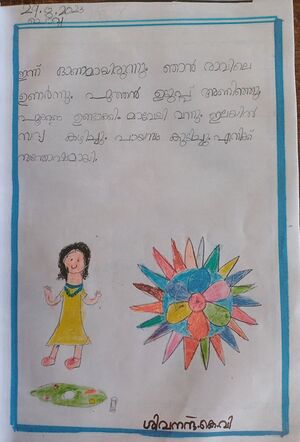 ഇന്ന് ഓണമായിരുന്നു. ഞാൻ രാവിലെ
ഉണർന്നു. പുത്തൻ ഉടുപ്പ് അണിഞ്ഞു.
പൂക്കളം ഉണ്ടാക്കി. മാവേലി വന്നു. ഇലയിൽ
സദ്യ കഴിച്ചു. പായസം കുടിച്ചു. എനിക്ക്
സന്തോഷമായി.
ശിവനന്ദ്.കെ.വി